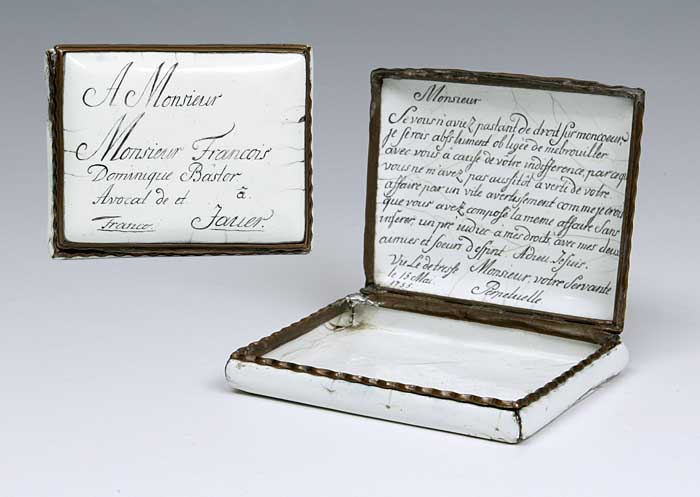 A Monsieur
Monsieur Francois
Dominique Bastor
Avocal de et à
Franco. Jauer.
Monsieur
Se vous n'aviez pas tant de droit sur mon coeur
je serois abslument obligée de me brouiller
avec vous a cause de votre indifference, par ce que
vous ne m'avez pas aussitôt averti de votre
affaire par un vite avertisement comme je crois
que vous avez composé la meme affaire sans
inferer, un pré iudice a mes droits avec mes deux
et soeurs d'esprit. Adieu Jesuis.
Vis Monsieur, votre Servante
le 15 Mai. Perpetuelle.
1755